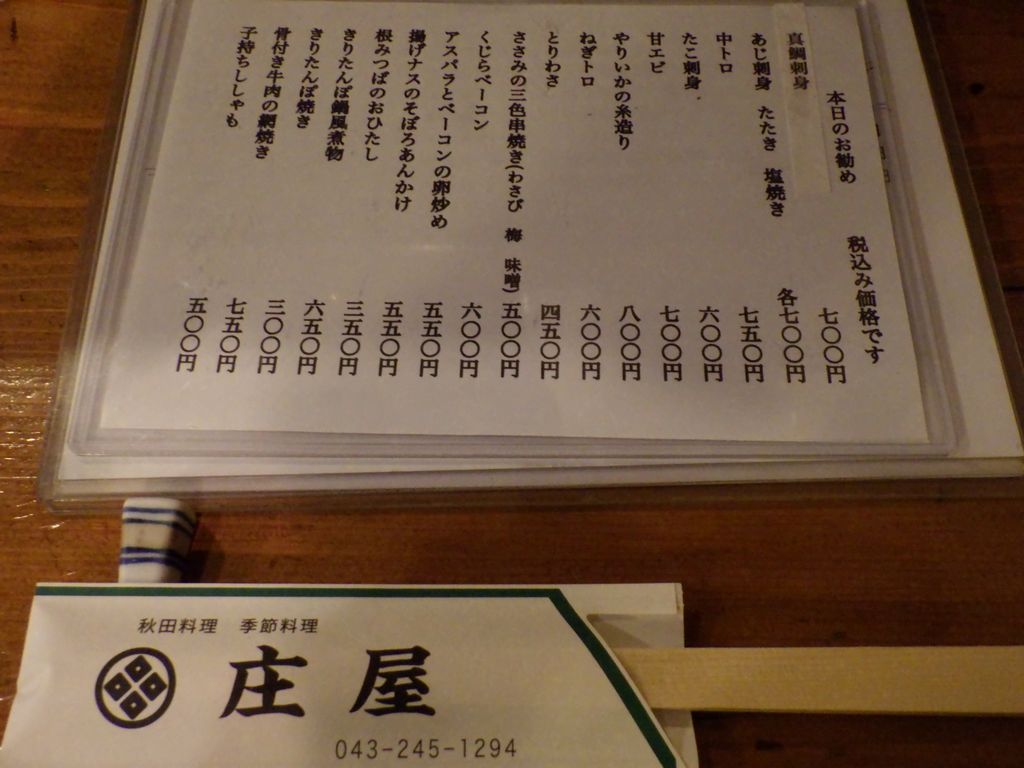 本日のお勧め　税込み価格です
真鯛刺身　七〇〇円
あじ刺身　たたき　塩焼き　各七〇〇円
中トロ　七五〇円
たこ刺身　六〇〇円
甘エビ　七〇〇円
やりいかの糸造り　八〇〇円
ねぎトロ　六〇〇円
とりわさ　四五〇円
ささみの三色串焼き(わさび　梅　味噌)　五〇〇円
くじらベーコン　六〇〇円
アスパラとベーコンの卵炒め　五五〇円
揚げナスのそぼろあんかけ　五五〇円
根みつばのおひたし　三五〇円
きりたんぽ鍋風煮物　六五〇円
きりたんぽ焼き　三〇〇円
骨付き牛肉の網焼き　七五〇円
子持ちししゃも　五〇〇円
秋田料理　季節料理
庄屋
043-245-1294